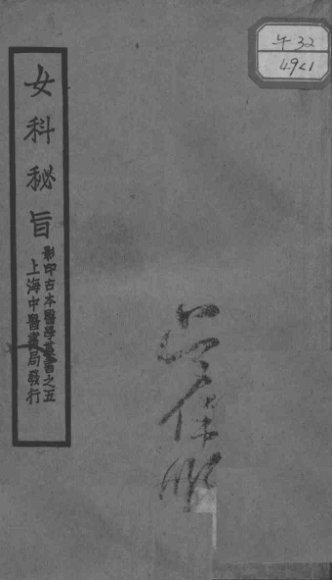 女科秘旨
影印古本醫學叢書之五
上海中醫書局發行
午32
4921